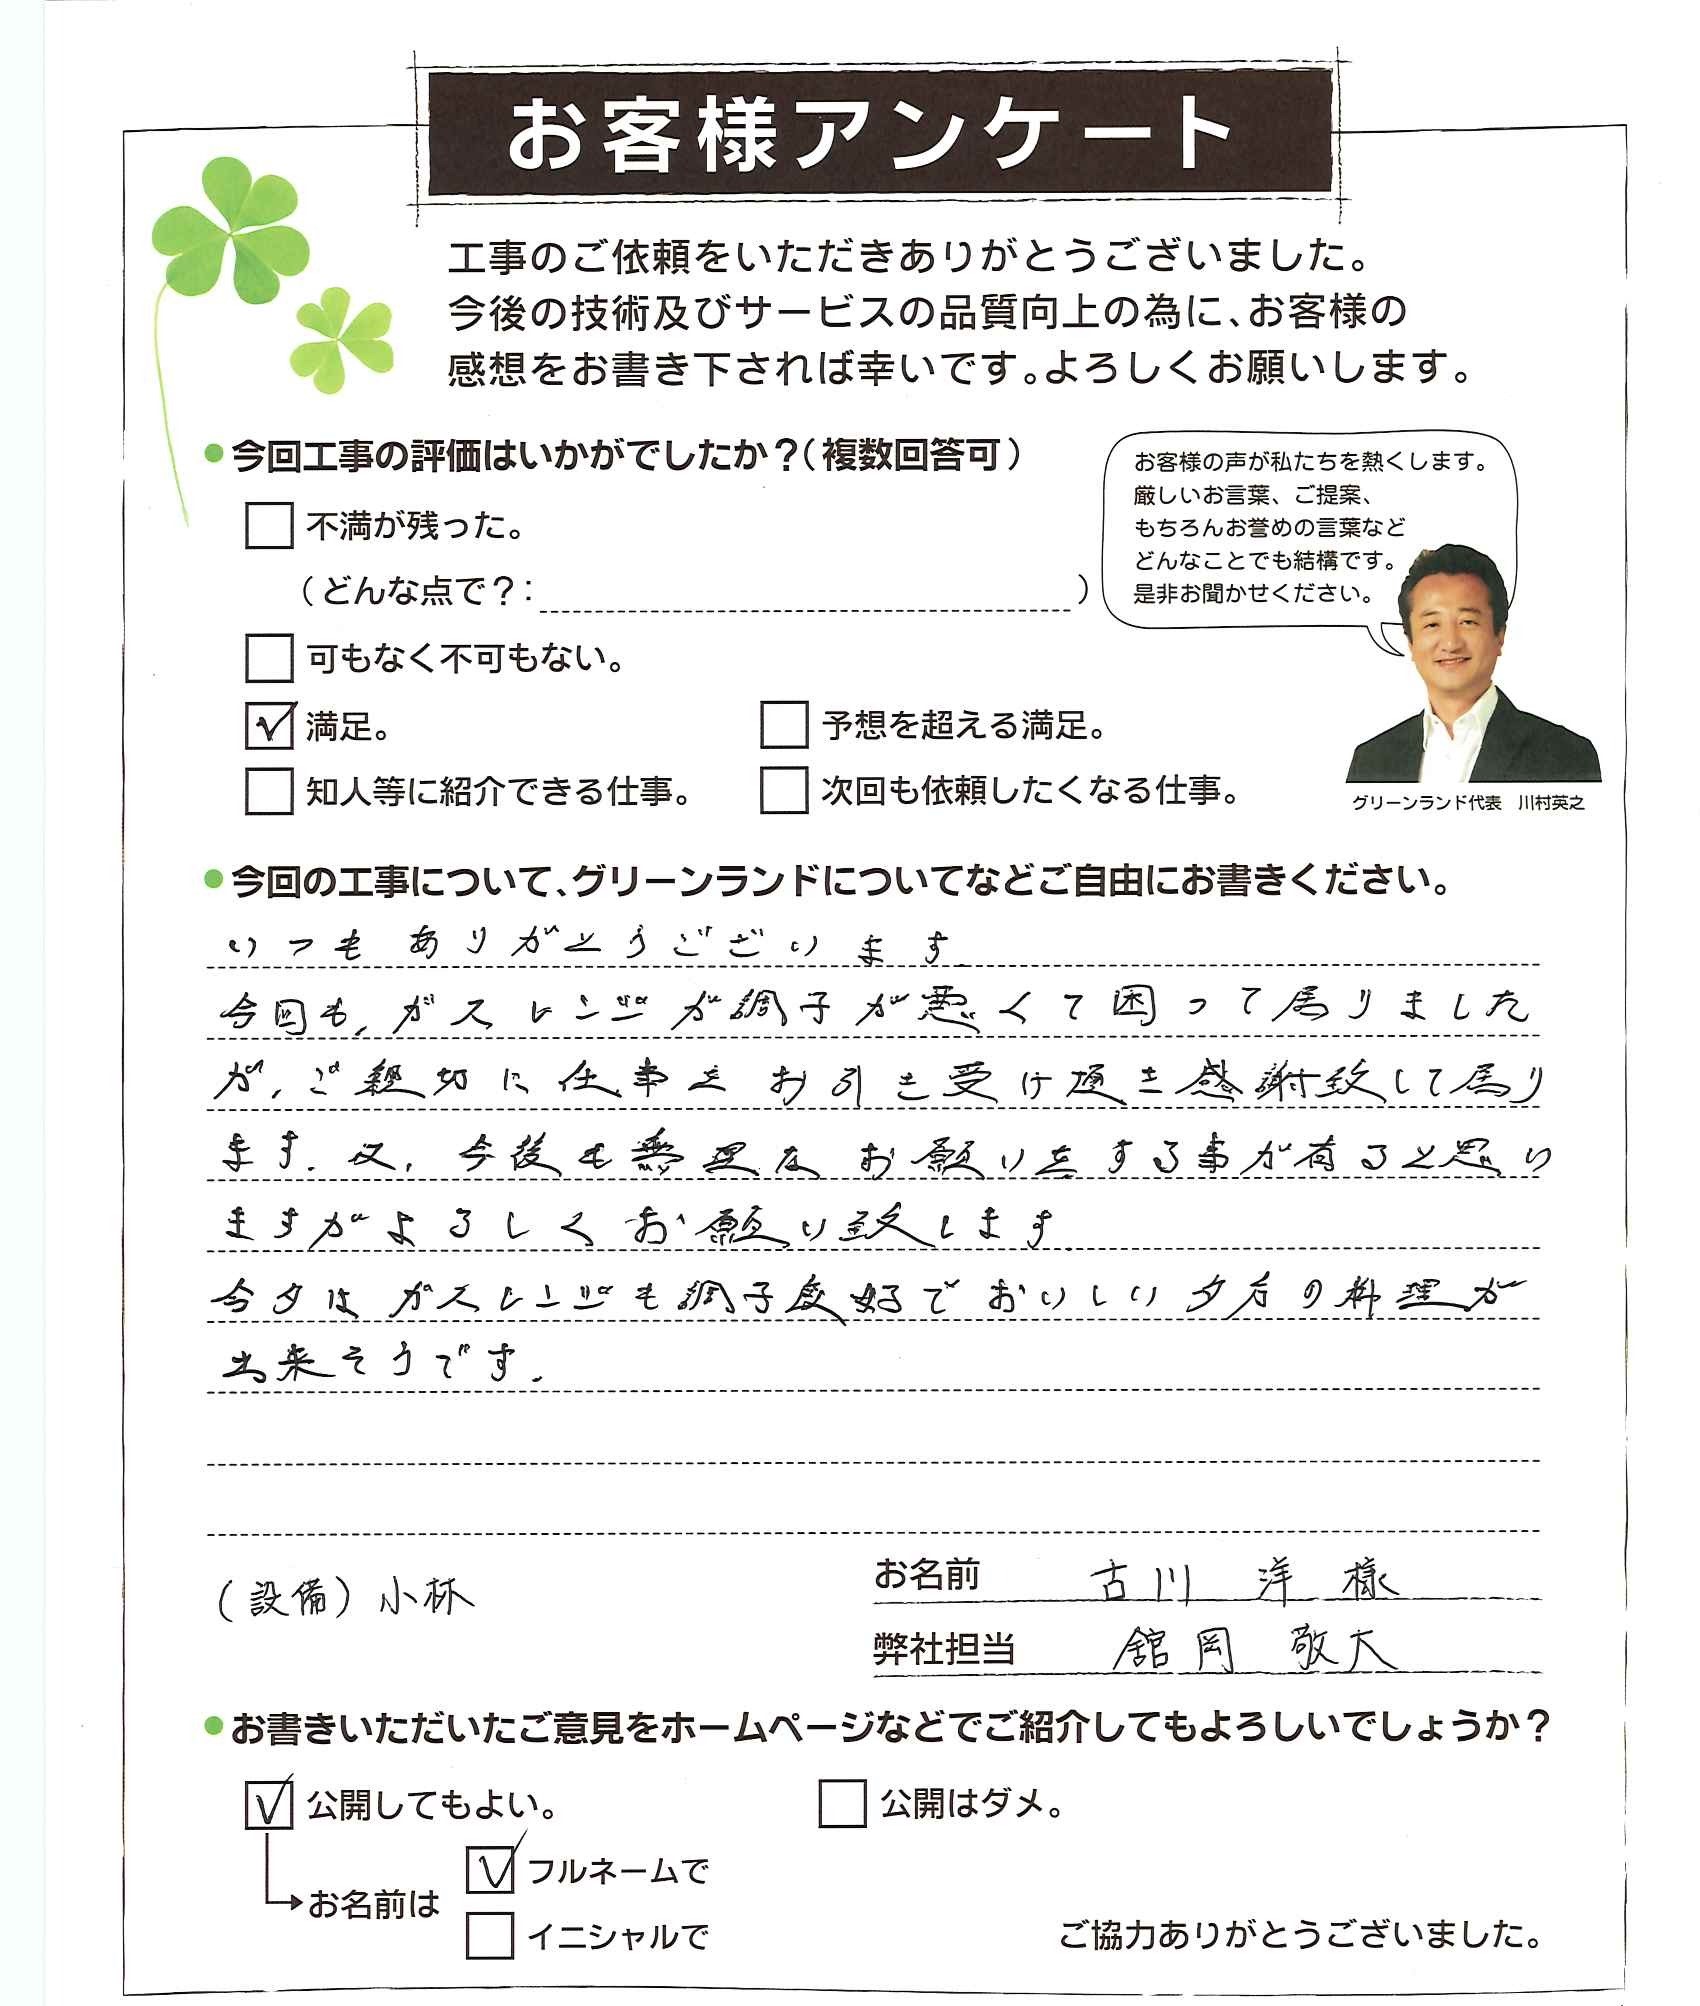 お客様アンケート
工事のご依頼をいただきありがとうございました。
今後の技術及びサービスの品質向上の為に、お客様の
感想をお書き下されば幸いです。よろしくお願いします。
●今回工事の評価はいかがでしたか？（複数回答可）
お客様の声が私たちを熱くします。
厳しいお言葉、ご提案、
もちろんお誉めの言葉など
どんなことでも結構です。
是非お聞かせください。
不満が残った。
（どんな点で？： ）
可もなく不可もない。
満足。
予想を超える満足。
知人等に紹介できる仕事。
次回も依頼したくなる仕事。
グリーンランド代表 川村英之
●今回の工事について、グリーンランドについてなどご自由にお書きください。
いつもありがとうございます
今回も、ガスレンジが調子が悪くて困って居りました
が、ご親切に仕事をお引き受け頂き感謝致して居り
ます。又、今後も無理なお願いをする事が有ると思い
ますがよろしくお願い致します
今夕はガスレンジも調子良好でおいしい夕食の料理が
出来そうです。
（設備）小林
お名前 古川 洋 様
弊社担当 舘岡 敬大
●お書きいただいたご意見をホームページなどでご紹介してもよろしいでしょうか？
公開してもよい。
公開はダメ。
お名前は
フルネームで
イニシャルで
ご協力ありがとうございました。